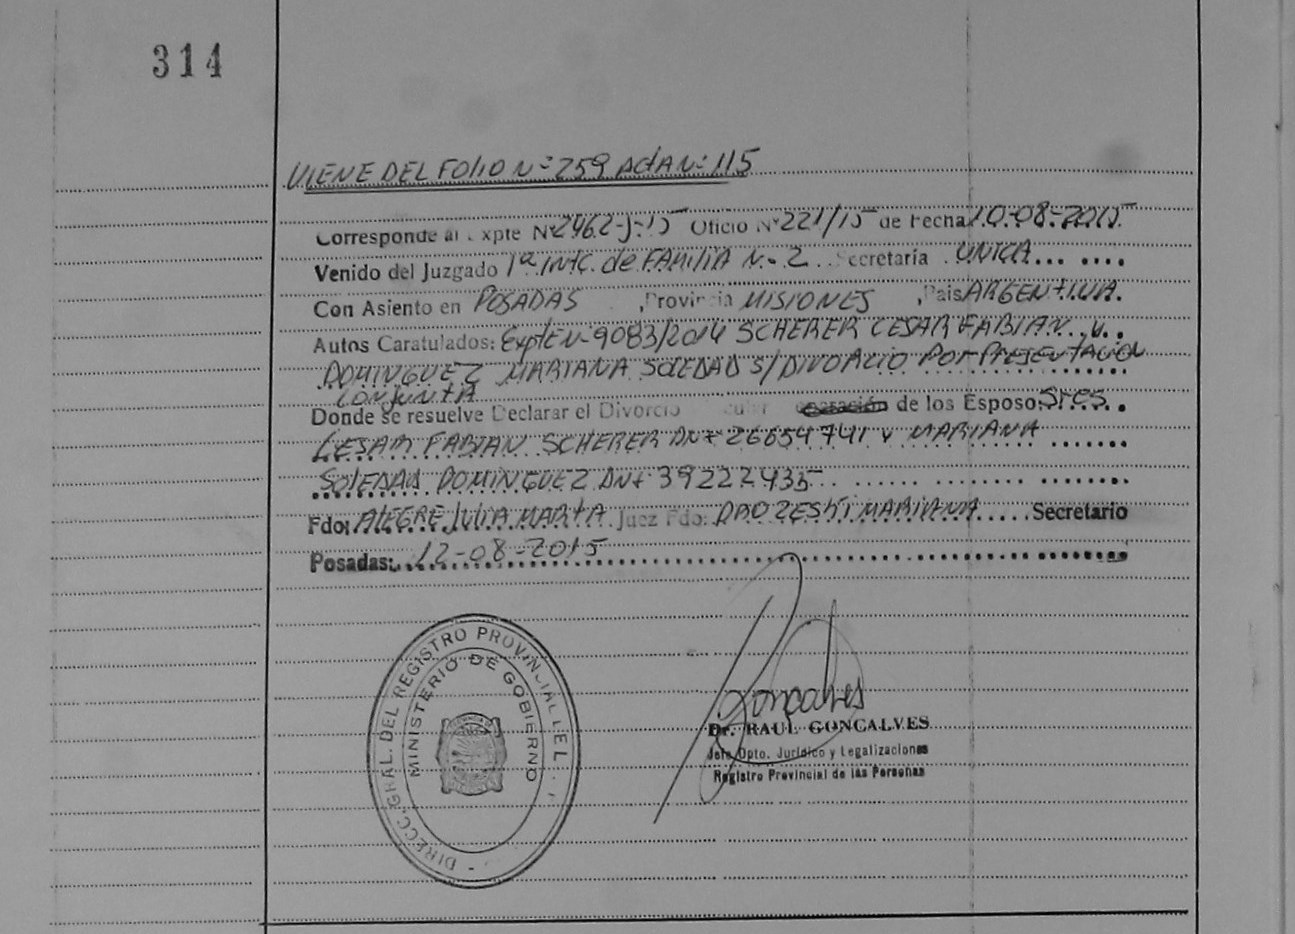 314
VIENE DEL FOLIO N: 259 Acta N: 115
Corresponde al Expte Nº 2462-J-15 Oficio Nº 221/15 de Fecha 10-08-2015
Venido del Juzgado 1ª INTC. de FAMILIA N- 2 Secretaria UNICA
Con Asiento en POSADAS, Provincia MISIONES, Pais ARGENTINA.
Autos Caratulados: Expte N- 9083/2014 SCHERER CESAR FABIAN
DOMINGUEZ MARIANA SOLEDAD S/DIVORCIO POR PRESENTACION
CONJUNTA
Donde se resuelve Declarar el Divorcio de los Esposo: Sres
CESAR FABIAN SCHERER DNI 26654741 y MARIANA
SOLEDAD DOMINGUEZ DNI 39227435
Fdo: ALEGRE JULIA MARTA Juez Fdo: MARIANA Secretario
Posadas: 12-08-2015
DIRECC. GRAL. DEL REGISTRO PROVINCIAL DE L
MINISTERIO DE GOBIERNO
Goncalves
Dr. RAUL GONCALVES
Jefe Dpto. Jurídico y Legalizaciones
Registro Provincial de las Personas